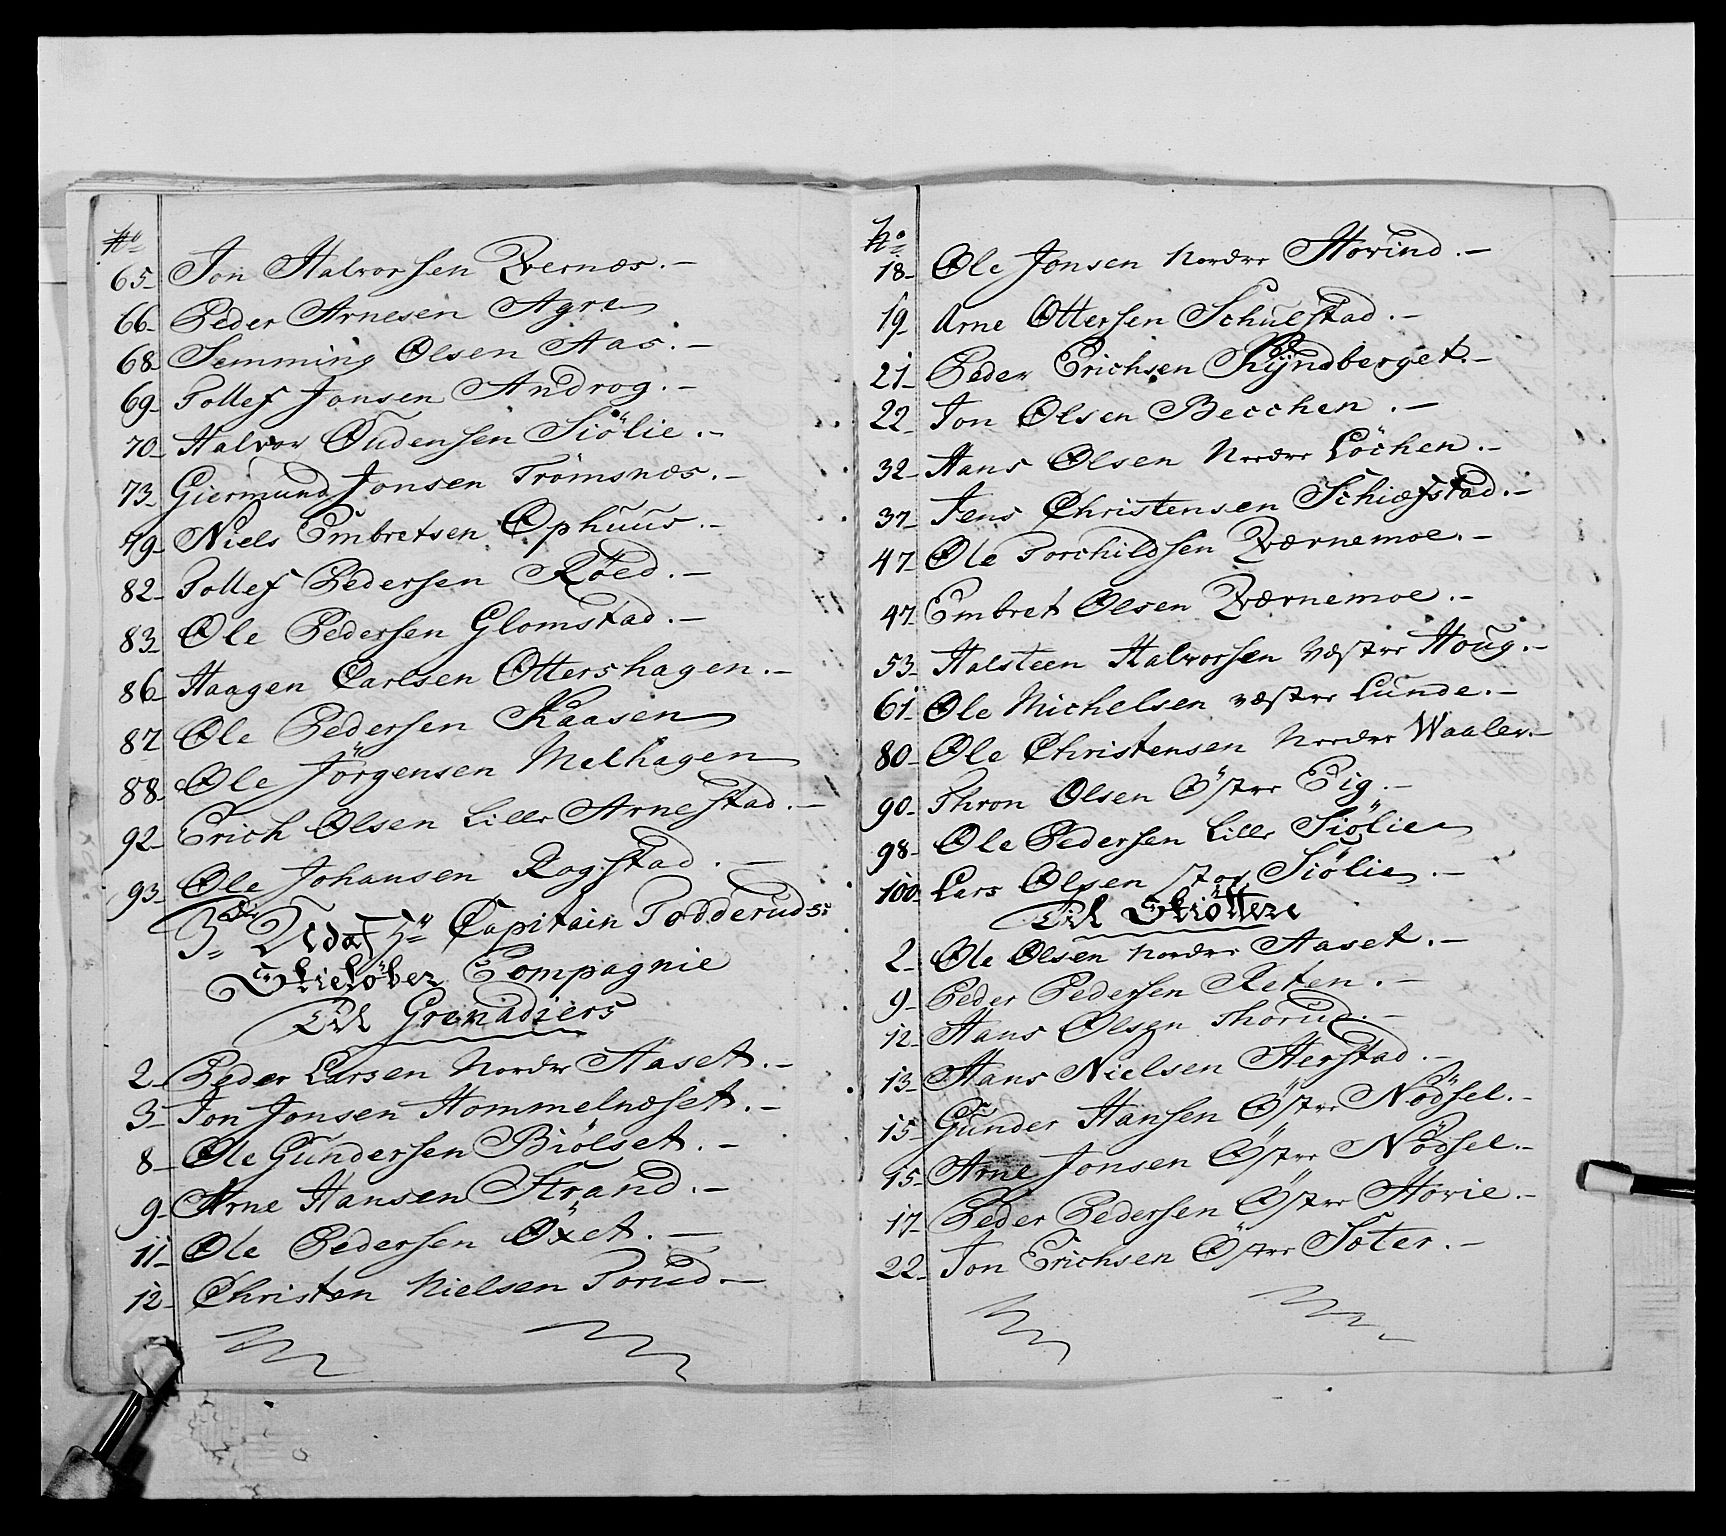 No
65- Jon Halvorsen Qvernæs.-
66- Peder Arnesen Agre
68- Semming Olsen Aas.-
69- Tollef Jonsen Androg.-
70- Halvor Oudensen Siölie.-
73- Giermund Jonsen Trömsnæs.-
79- Niels Embretsen Ophuus.-
82- Tollef Pedersen Röed.-
83- Ole Pedersen Glomstad.-
86- Haagen Carlsen Ottershagen.-
87 Ole Pedersen Kaasen
88- Ole Jörgensen Melhagen
92- Erich Olsen Lille Arnestad.-
93- Ole Johansen Rogstad.-
3de Udaf Hr Capitain Todderuds:
Skielöber Compagnie
Til Grenadiers
2- Peder Larsen Nordre Aaset.-
3- Jon Jonsen Hommelnæset.-
8- Ole Gundersen Biölset.-
9- Arne Hansen Strand.-
11- Ole Pedersen Öxet.-
12- Christen Nielsen Torud.-
No
18- Ole Jonsen Nordre Hovind.-
19- Arne Ottersen Schulstad.-
21- Peder Erichsen Kyndberget.-
22- Jon Olsen Becchen.-
32- Hans Olsen Nordre Löchen.-
37- Jens Christensen Schiæfstad.-
47- Ole Torchildsen Qværnemoe.-
47- Embret Olsen Qværnemoe.-
53- Halsteen Halvorsen Væstre Houg.-
61- Ole Michelsen væstre Lunde.-
80- Ole Christensen Nordre Waaler.-
90- Thron Olsen Östre Eig.-
98- Ole Pedersen Lille Siölie
100- Lars Olsen stor Siölie.-
Til Skiöttere
2- Ole Olsen Nordre Aaset.-
9- Peder Pedersen Reten.-
12- Hans Olsen Thorud.-
13- Hans Nielsen Herstad.-
15- Gunder Hansen Östre Nödsel.-
15- Arne Jonsen Östre Nödsel.-
17- Peder Pedersen Östre Hovie.-
22- Jon Erichsen Östre Sæter.-